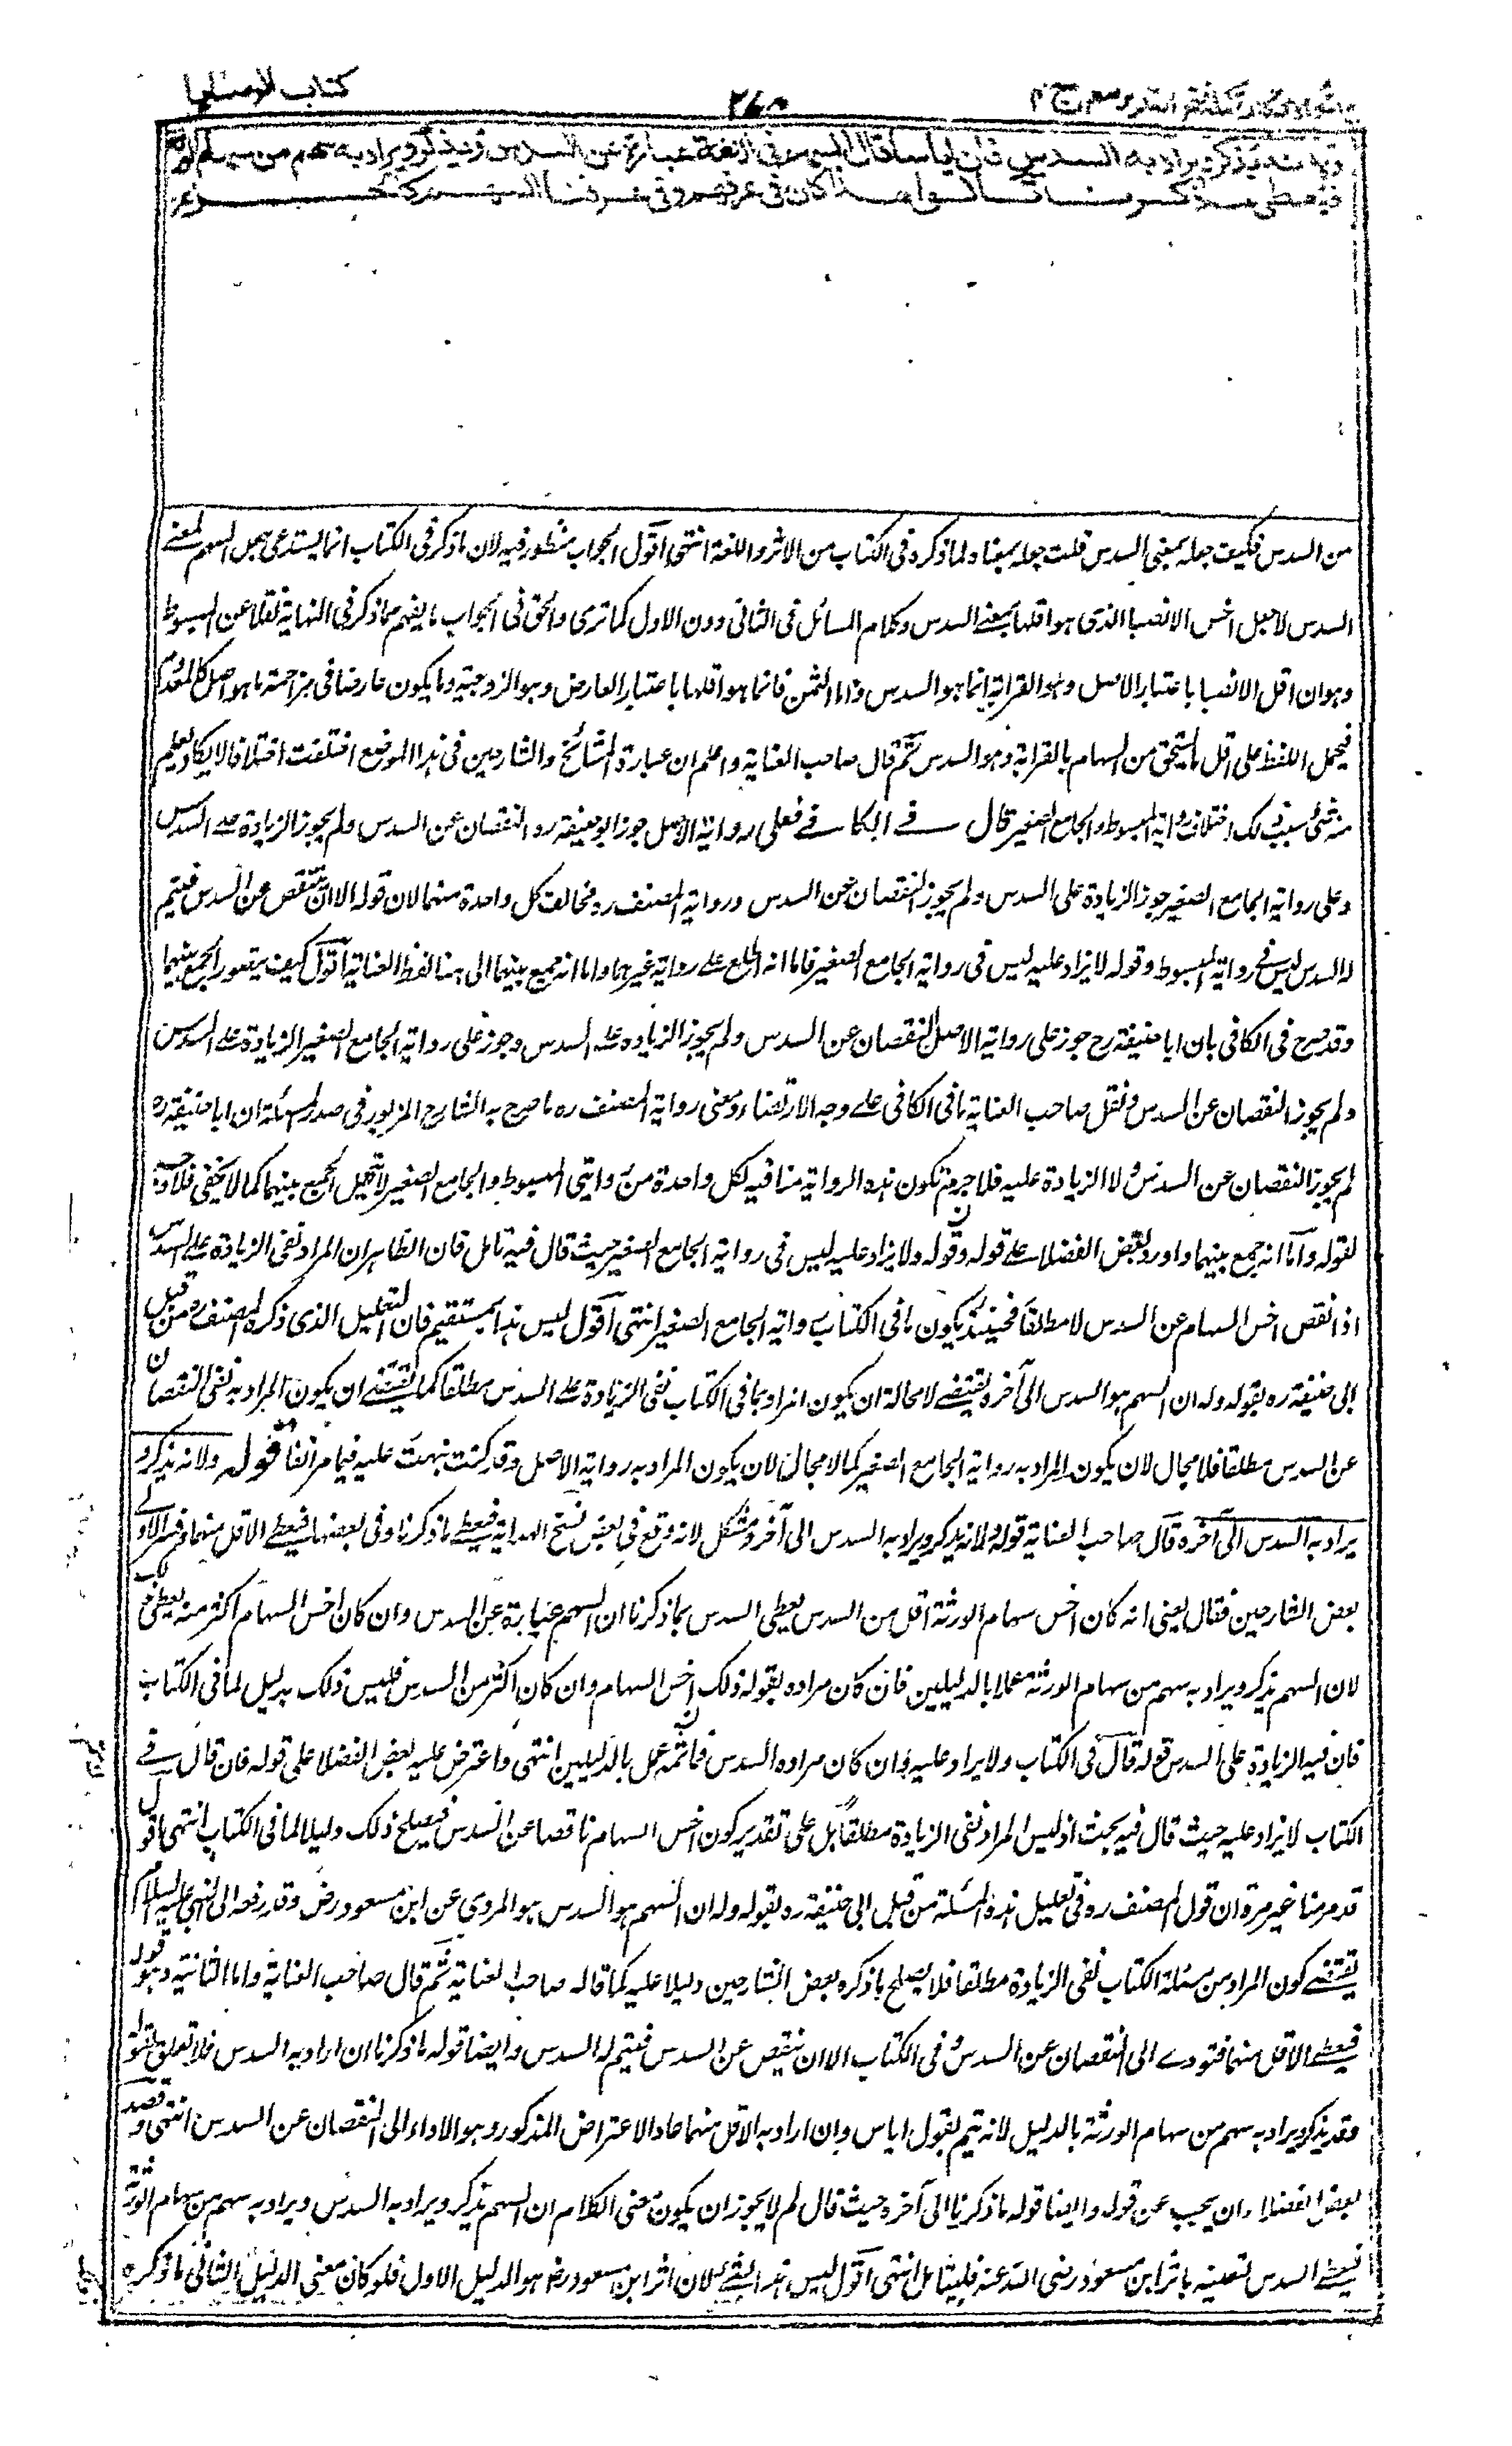 كتاب الوصايا
ولانه يذكر ويراد به السدس فان اياسا قال السهم في اللغة عبارة عن السدس ويذكر ويراد به سهم من سهام الورثة
فيعطى ما ذكرنا قالوا هذا كان في عرفهم وفي عرفنا السهم كالجزء
من السدس فكيف جعله بمعنى السدس قلت جعله بمعناه لما ذكره في الكتاب من الاثر واللغة انتهى اقول الجواب منظور فيه لان ما ذكر في الكتاب انما يستدعى جعل السهم بمعنے
السدس لا جعل اخس الانصبا الذى هو اقلها بمعنے السدس وكلام السائل فى الثانى دون الاول كما ترى والحق فى الجواب ما يفهم مما ذكر فى النهاية نقلا عن المبسوط
وهو ان اقل الانصبا باعتبار الاصل وهو القرابة انما هو السدس واما الثمن فانما هو اقلها باعتبار العارض وهو الزوجية وما يكون عارضا فى مزاحمة ما هو اصل كالمعدوم
فيحمل اللفظ على اقل ما يستحق من السهام بالقرابة وهو السدس ثم قال صاحب العناية واعلم ان عبارة المشائخ والشارحين فى هذا الموضع اختلفت اختلافا لا يكاد يعلم
منه شئ سبب ذلك اختلاف رواية المبسوط والجامع الصغير قال فے الكافے فعلى رواية الاصل جوز ابو حنيفة ره النقصان عن السدس ولم يجوز الزيادة علے السدس
وعلى رواية الجامع الصغير جوز الزيادة على السدس ولم يجوز النقصان عن السدس ورواية المصنف ره مخالف كل واحدة منهما لان قوله الا ان ينقص عن السدس فيتم
له السدس ليس فے رواية المبسوط وقوله لا يزاد عليه ليس فى رواية الجامع الصغير فاما انه اطلع علے رواية غيرهما واما انه جمع بينهما الى هنا لفظ العناية اقول كيف يتصور الجمع بينهما
وقد صرح فى الكافى بان ابا حنيفة رح جوز على رواية الاصل النقصان عن السدس ولم يجوز الزيادة علے السدس وجوز على رواية الجامع الصغير الزيادة علے السدس
ولم يجوز النقصان عن السدس ونقل صاحب العناية ما فى الكافى علے وجه الارتضاء ومعنى رواية المصنف ره ما صرح به الشارح المزبور فى صدر المسئلة ان ابا حنيفة ره
لم يجوز النقصان عن السدس ولا الزيادة عليه فلا جرم تكون هذه الرواية منافية لكل واحدة من روايتى المبسوط والجامع الصغير لا تحمل الجمع بينهما كما لا يخفى فلا وجه
لقوله واما انه جمع بينهما واورد بعض الفضلاء علے قوله وقوله ولا يزاد عليه ليس فى رواية الجامع الصغير حيث قال فيه تامل فان الظاهر ان المراد نفى الزيادة علے السدس
اذا نقص اخس السهام عن السدس لا مطلقا فحينئذ يكون ما فى الكتاب رواية الجامع الصغير انتهى اقول ليس هذا بمستقيم فان التعليل الذى ذكره المصنف ره من قبل
ابى حنيفة ره بقوله وله ان السهم هو السدس الى آخره يقتضے لا محالة ان يكون المراد بما فى الكتاب نفى الزيادة علے السدس مطلقا كما يقتضے ان يكون المراد به نفى النقصان
عن السدس مطلقا فلا مجال لان يكون المراد به رواية الجامع الصغير كما لا مجال لان يكون المراد به رواية الاصل وقد كنت نبهت عليه فيما مر آنفا قوله ولانه يذكر و
يراد به السدس الى آخره قال صاحب العناية قوله ولانه يذكر ويراد به السدس الى آخره مشكل لانه وقع فى بعض نسخ الهداية فيعطے ما ذكرنا وفى بعضها فيعطے الاقل منهما وفسر الاولے
بعض الشارحين فقال يعنى انه كان اخس سهام الورثة اقل من السدس يعطى السدس بما ذكرنا ان السهم عبارة عن السدس وان كان اخس السهام اكثر منه يعطى ذلك
لان السهم يذكر ويراد به سهم من سهام الورثة عملا بالدليلين فان كان مراده بقوله ذلك اخس السهام وان كان اكثر من السدس فليس ذلك بدليل لما فى الكتاب
فان فيه الزيادة على السدس قوله قال فى الكتاب ولا يزاد عليه وان كان مراده السدس فما ثمه عمل بالدليلين انتهى واعترض عليه بعض الفضلا على قوله فان قال فے
الكتاب لا يزاد عليه حيث قال فيه بحث اذ ليس المراد نفى الزيادة مطلقا بل على تقدير كون اخس السهام ناقصا عن السدس فيصلح ذلك دليلا لما فى الكتاب انتهى اقول
قد مر منا غير مرة ان قول المصنف ره فى تعليل هذه المسئلة من قبل ابى حنيفة ره بقوله وله ان السهم هو السدس هو المروى عن ابن مسعود رض وقد رفعه الى النبى عليه السلام
يقتضے كون المراد من مسئلة الكتاب نفى الزيادة مطلقا فلا يصلح ما ذكره بعض الشارحين دليلا عليه كما قاله صاحب العناية ثم قال صاحب العناية واما الثانية وهو قوله
فيعطے الاقل منهما فتودے الى النقصان عن السدس وفى الكتاب الا ان ينقص عن السدس فيتم له السدس وايضا قوله ما ذكرنا ان اراد به السدس فلا تعلق لقوله
وقد يذكر ويراد به سهم من سهام الورثة بالدليل لانه يتم بقول اياس وان اراد به الاقل منهما عاد الاعتراض المذكور وهو الاداء الى النقصان عن السدس انتهى وقصد
بعض الفضلاء ان يجيب عن قوله وايضا قوله ما ذكرنا الى آخره حيث قال لم لا يجوز ان يكون معنى الكلام ان السهم يذكر ويراد به السدس ويراد به سهم من سهام الورثة
فيعطے السدس لتعينه باثر ابن مسعود رضى الله عنه فليتامل انتهى اقول ليس هذا بشئ لان اثر ابن مسعود رض هو الدليل الاول فلو كان معنى الدليل الثانى ما ذكره